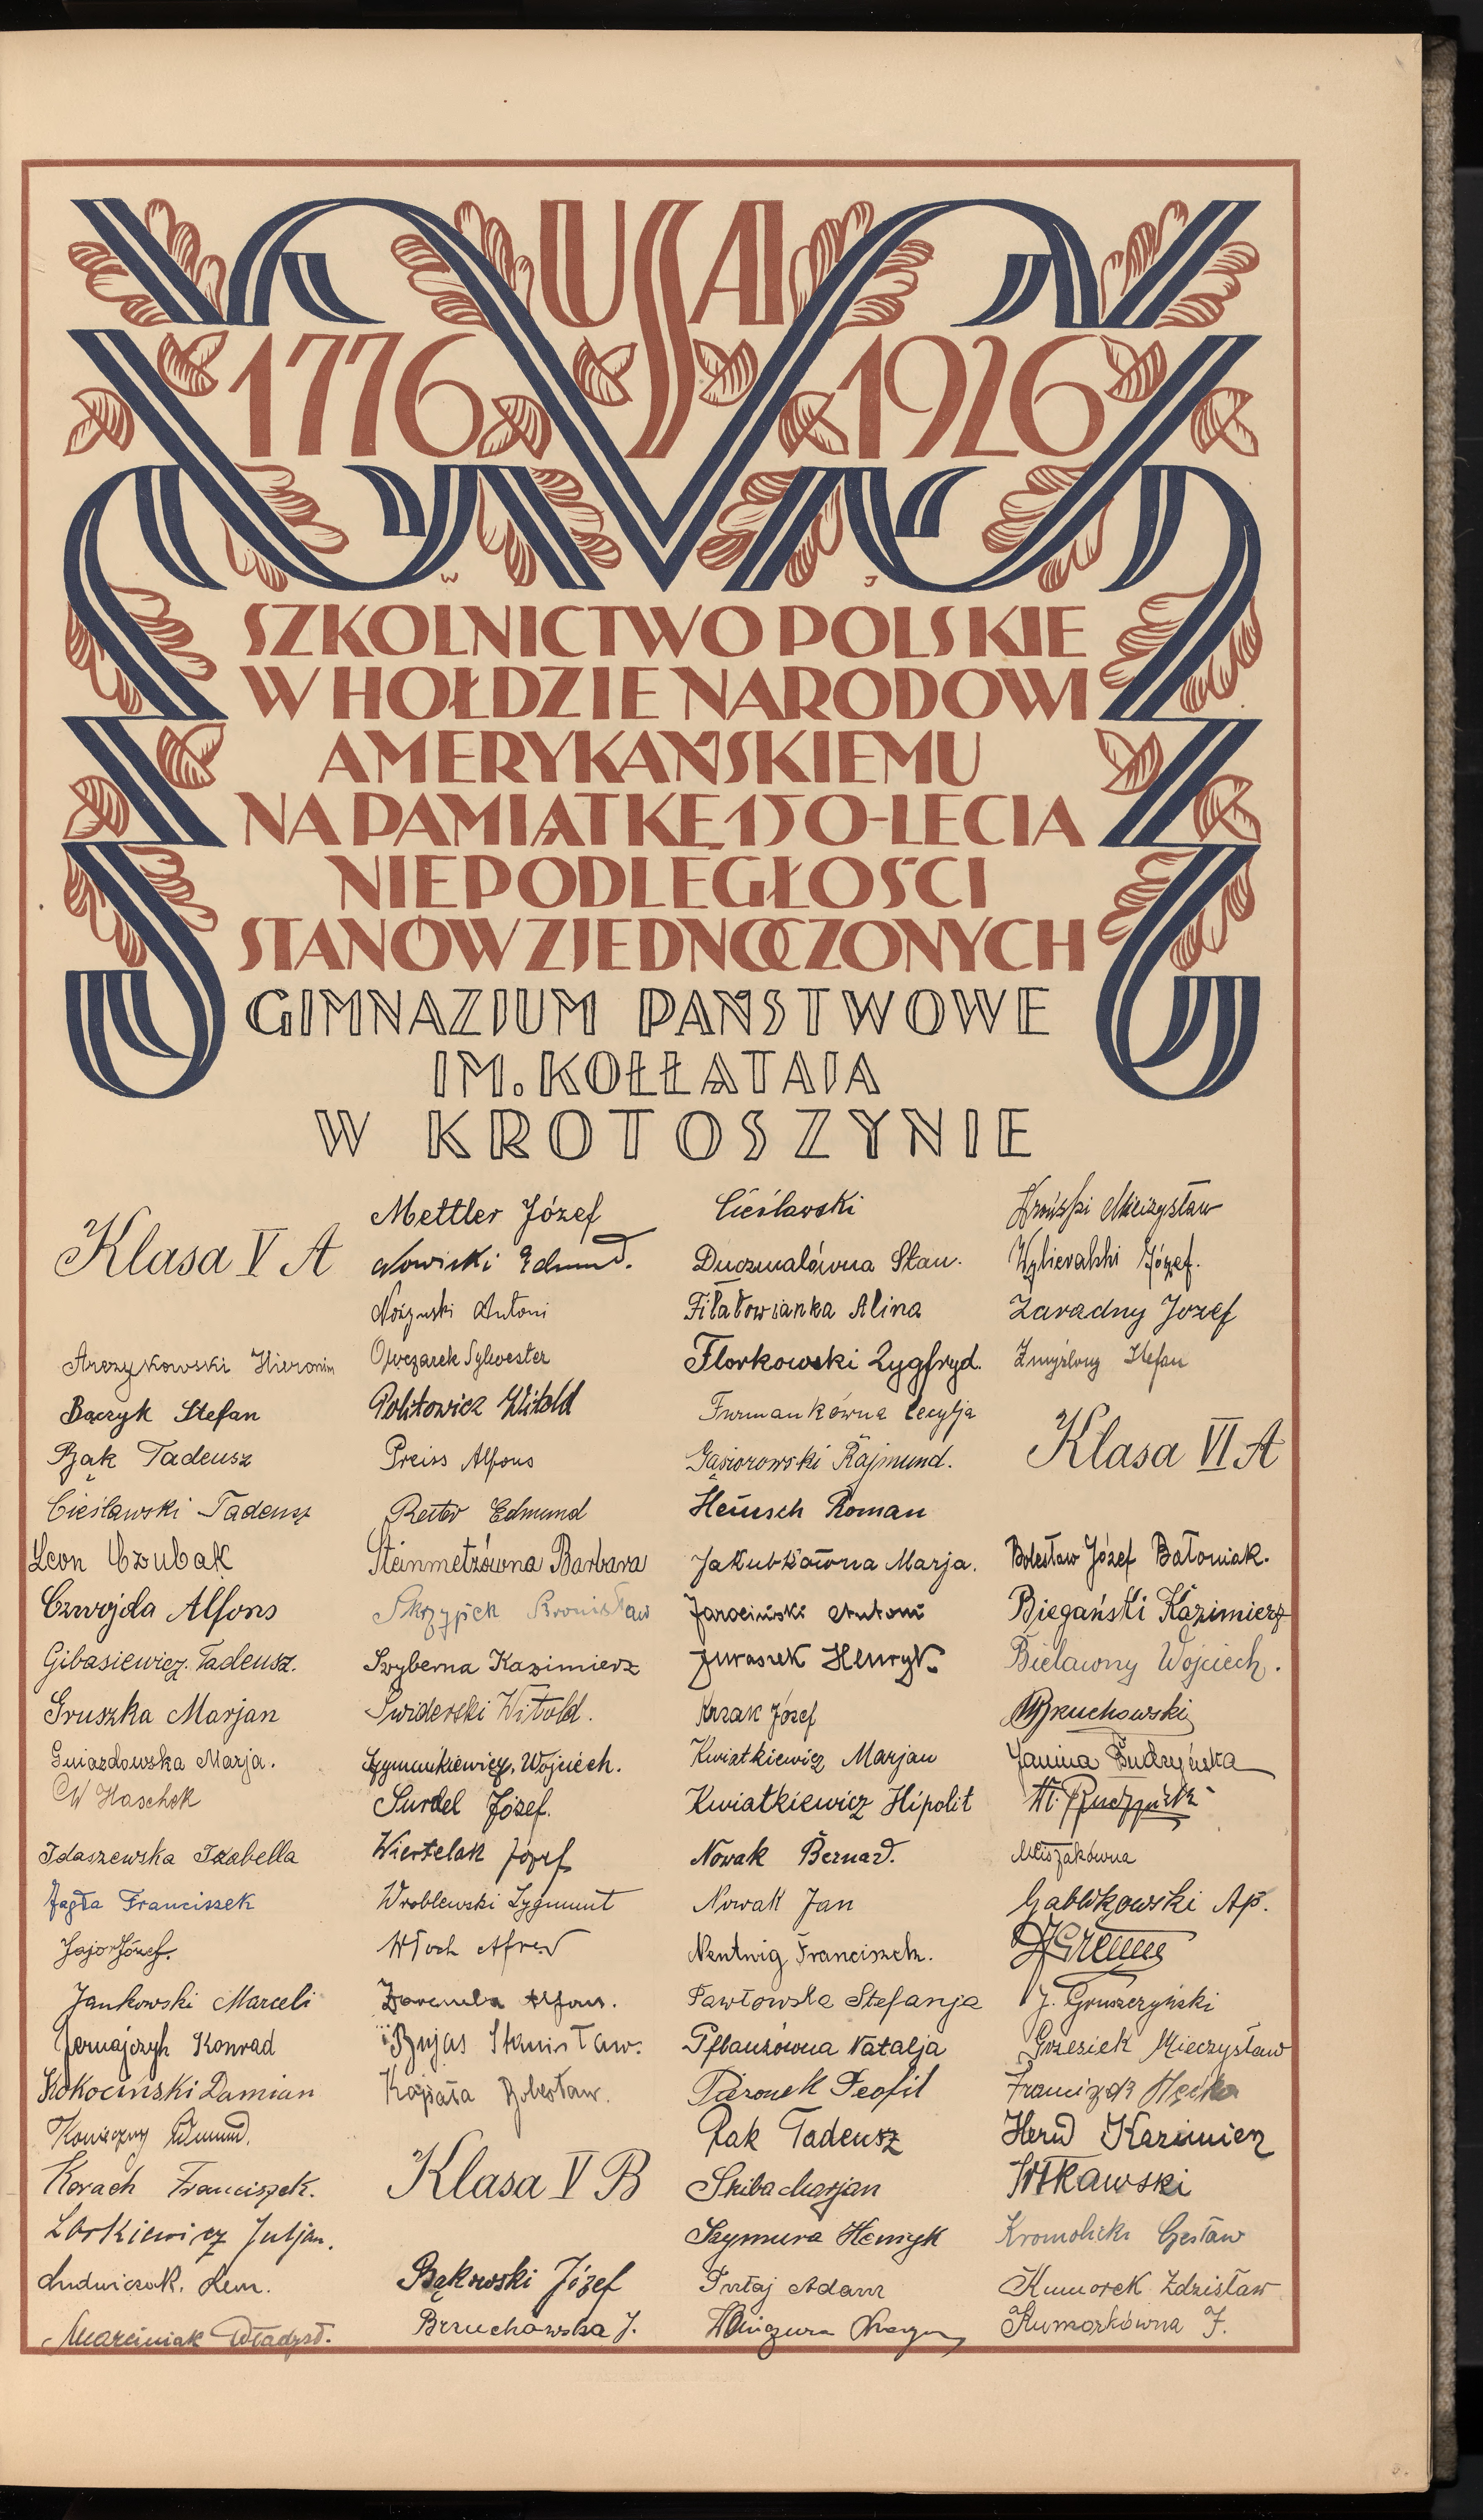 USA
1776 1926
W J
SZKOLNICTWO POLSKIE
W HOŁDZIE NARODOWI
AMERYKAŃSKIEMU
NA PAMIĄTKĘ 150-LECIA
NIEPODLEGŁOŚCI
STANÓW ZJEDNOCZONYCH
GIMNAZJUM PAŃSTWOWE
IM. KOŁŁĄTAJA
W KROTOSZYNIE
Klasa V A
Arczykowski Hieronim
Bączyk Stefan
Bąk Tadeusz
Cieślawski Tadeusz
Leon Czubak
Czwojda Alfons
Gibasiewicz Tadeusz.
Gruszka Marjan
Gwiazdowska Marja.
W Haschek
Idaszewska Izabella
Jagła Franciszek
Jajor Józef.
Jankowski Marceli
Jernajczyk Konrad
Kokociński Damian
Konieczny Edmund.
Korach Franciszek.
Lorkiewicz Juljan.
Ludwiczak. Leon.
Marciniak Władysł.
Mettler Józef
Nowicki Edmund.
Antoni
Owczarek Sylwester
Politowicz Witold
Preiss Alfons
Reiter Edmund
Steinmetzówna Barbara
Skrzypek Bronisław
Szyberna Kazimierz
Świderski Witold.
Szymankiewicz, Wojciech.
Surdel Józef.
Wiertelak Józef
Wróblewski Zygmunt
Włoch Alfred
Zaremba Alfons.
Bujas Stanisław.
Bolesław.
Klasa V B
Bąkowski Józef
Brzuchowska J.
Cieślawski
Duczmalówna Stan.
Filałowianka Alina
Florkowski Zygfryd.
Furmankówna Cecylja
Gąsiorowski Rajmund.
Heinsch Roman
Jakubkówna Marja.
Jarociński Antoni
Juraszek Henryk.
Kazak Józef
Kwiatkiewicz Marjan
Kwiatkiewicz Hipolit
Nowak Bernard.
Nowak Jan
Nentwig Franciszek.
Pawłowska Stefanja
Pflanzówna Natalja
Piaronek Teofil
Rak Tadeusz
Skiba Marjan
Szymura Henryk
Turtaj Adam
Mieczysław
Józef.
Zaradny Jozef
Zmyślony Stefan
Klasa VI A
Bolesław Józef Batoniak.
Biegański Kazimierz
Bielawny Wojciech.
Brzuchowski
Janina Budzyńska
M. Budzyńska
Gabwkowski Ap.
J. Gruszczyński
Grzesiek Mieczysław
Franciszek
Herud Kazimierz
Itkawski
Kromolicki Czesław
Kumorek Zdzisław
Kumorkówna J.